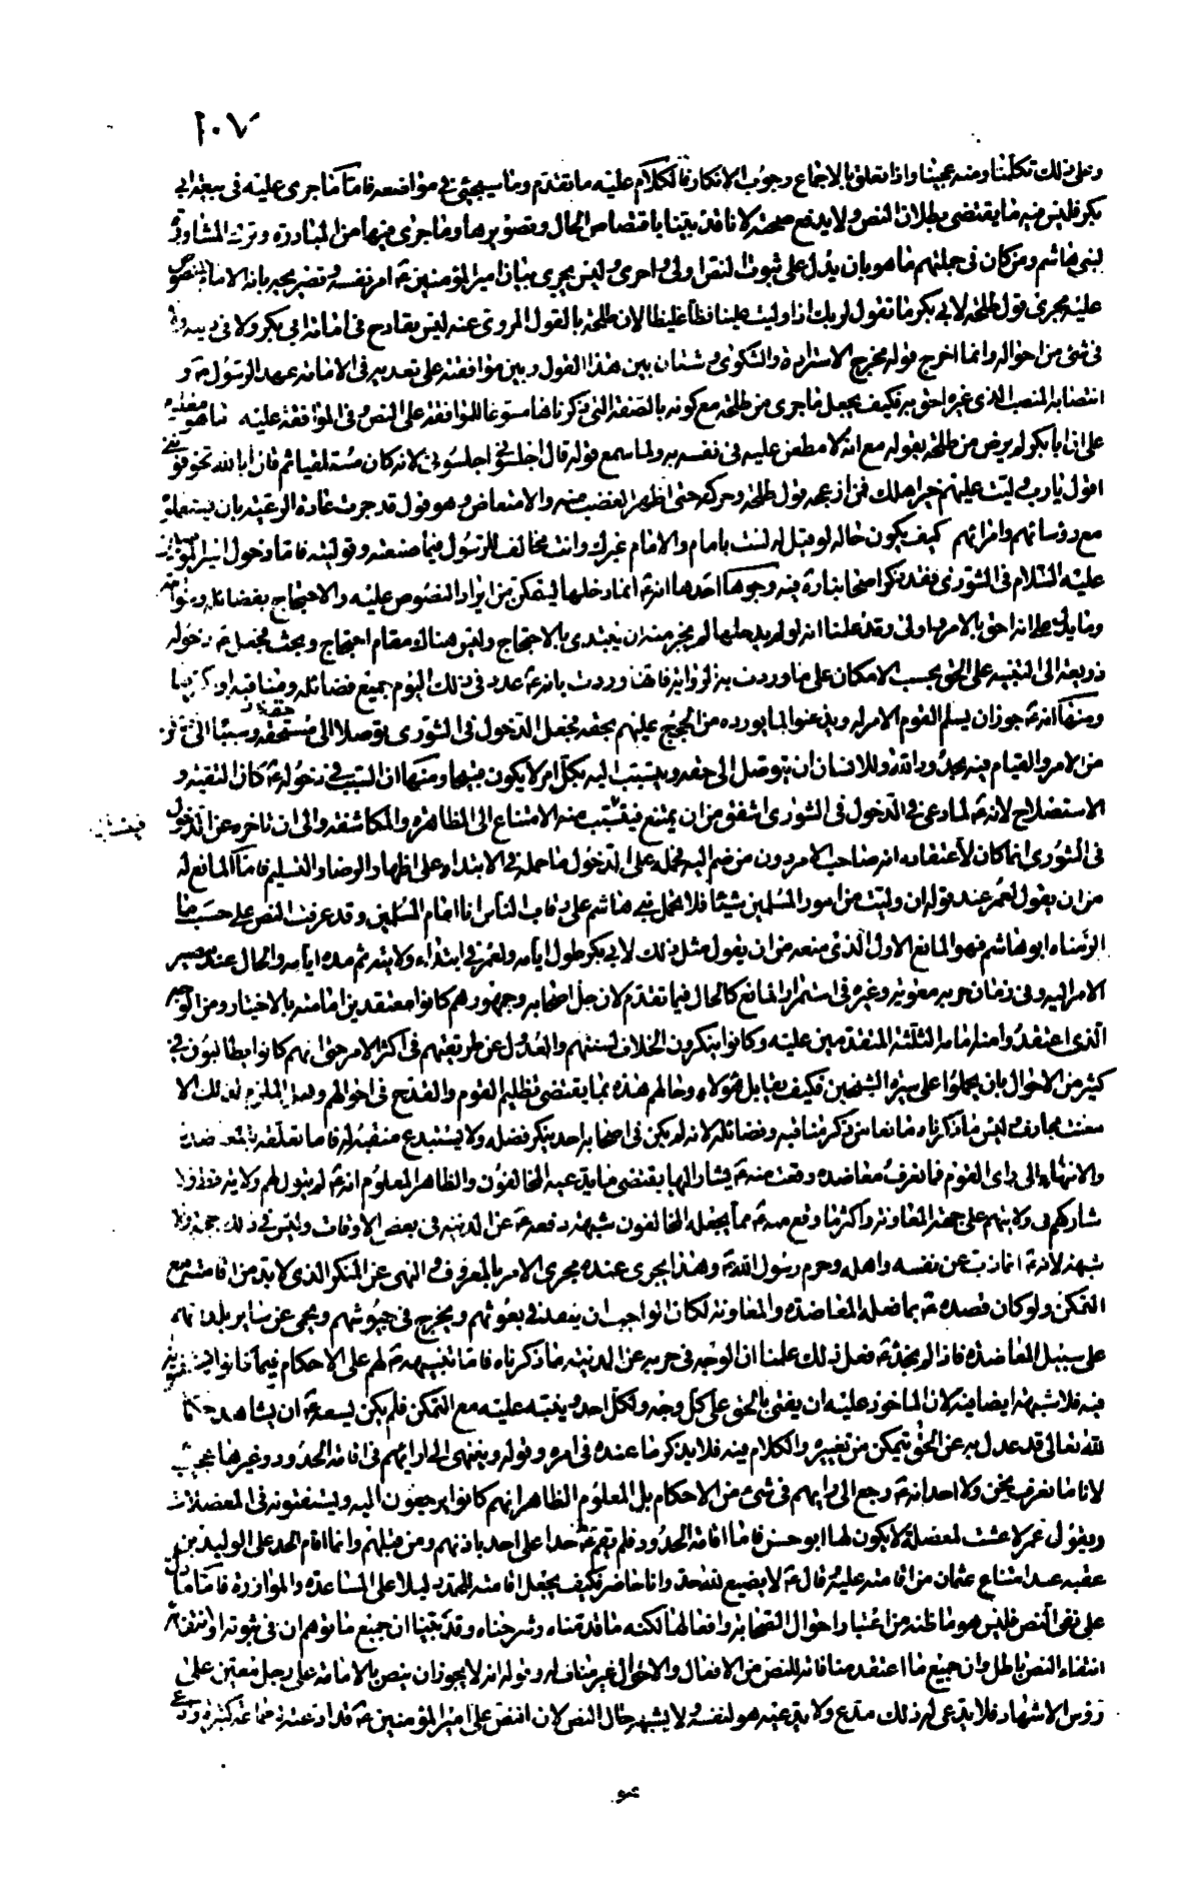 ١٠٧
وعلى ذلك تكلمنا ومنه عجبنا واذا تعلق بالاجماع وجوب الانكار فالكلام عليه ما تقدم وما سيجئ في مواضعه فاما ما جرى عليه في بيعة ابي
بكر فليس فيه ما يقتضى بطلان النص ولا يدفع صحته لانا قد بينا باقتصاص الحال وتصويرها وما جرى فيها من المبادرة وترك المشاورة
لبنى هاشم ومن كان في جملتهم ما هو بان يدل على ثبوت النص اولى واحرى وليس يجرى بيان امير المؤمنين ع امر نفسه وتصريحه بانه الامام المنصوص
عليه مجرى قول طلحة لابي بكر ما تقول لربك اذا وليت علينا فظا غليظا لان طلحة بالقول المروى عنه ليس بقادح في امامة ابي بكر ولا في دينه ولا
في شئ من احواله وانما اخرج قوله مخرج الاسترادة والشكوى وشتان بين هذا القول وبين موافقته على تعديه في الامامة عهد الرسول ص و
انتصابه المنصب الذى غيره احق به فكيف يجعل ما جرى من طلحة مع كونه بالصفة التى ذكرناها مسوغا للموافقة على النص وفى الموافقة عليه ما هو معلوم
على ان ابا بكر لم يرض من طلحة بقوله مع انه لا مطعن عليه في نفسه به ولما سمع قوله قال اجلسوني اجلسوني لانه كان مستلقيا ثم قال ابالله تخوفوني
اقول يا رب وليت عليهم خير اهلك فمن ازعجه قول طلحة وحركه حتى اظهر الغضب منه والامتعاض وهو قول قد جرت عادة الرعية بان يستعملوه
مع رؤسائهم وامرائهم كيف يكون حاله لو قيل له لست بامام والامام غيرك وانت مخالف للرسول فيما صنعته وتوليته فاما دخول امير المؤمنين
عليه السلام في الشورى فقد ذكر اصحابنا ره فيه وجوها احدها انه ع انما دخلها ليتمكن من ايراد النصوص عليه والاحتجاج بفضائله وسوابقه
وما يدل على انه احق بالامر واولى وقد علمنا انه لو لم يدخلها لم يجز منه ان يبتدى بالاحتجاج وليس هناك مقام احتجاج وبحث فجعل ع دخوله
ذريعة الى التنبيه على الحق بحسب الامكان على ما وردت به الرواية فانها وردت بانه ع عدد في ذلك اليوم جميع فضائله ومناقبه او اكثرها
ومنها انه ع جوز ان يسلم القوم الامر له ويذعنوا لما يورده من الحجج عليهم بحقه فجعل الدخول في الشورى توصلا الى مستحقه وسببا الى التمكن
من الامر والقيام فيه بحدود الله وللانسان ان يتوصل الى حقه ويتسبب اليه بكل امر لا يكون قبيحا ومنها ان السبب في دخوله ع كان التقية و
الاستصلاح لانه ع لما دعى الى الدخول في الشورى اشفق من ان يمتنع فيتسبب منه الامتناع الى المظاهرة والمكاشفة والى ان تاخره عن الدخول
في الشورى انما كان لاعتقاده انه صاحب الامر دون من ضم اليه فحمله على الدخول ما حمله في الابتداء على اظهار الرضا والتسليم فاما المانع له
من ان يقول لعمر عند قوله ان وليت من امور المسلمين شيئا فلا تحمل بنى هاشم على رقاب الناس انا امام المسلمين وقد عرفت النص على حسب ما
الزمناه ابو هاشم فهو المانع الاول الذى منعه من ان يقول مثل ذلك لابي بكر طول ايامه ولعمر في ابتداء ولايته ثم مدة ايامه والحال عند مصير
الامر اليه وفى زمان حربه معوية وغيره في استمرار المانع كالحال فيما تقدم لان جل اصحابه وجمهورهم كانوا معتقدين امامته بالاختيار ومن الوجه
الذى اعتقدوا منه امامة الثلثة المتقدمين عليه وكانوا ينكرون الخلاف لسنتهم والعدول عن طريقتهم في اكثر الامر حتى انهم كانوا يطالبونه في
كثير من الاحوال بان يحملوا على سيرة الشيخين فكيف يقابل هؤلاء وحالهم هذه بما يقتضى تظليم القوم والقدح في احوالهم وهل الملزم لذلك الا
متعنت مجازف وليس ما ذكرناه مانعا من ذكر مناقبه وفضائله لانه لم يكن في اصحابه احد ينكر فضله ولا يستبدع منقبة له فاما تعلقه بالمعاضدة
والانتهاء الى راى القوم فما نعرف معاضدة وقعت منه ع يشار اليها يقتضى ما يدعيه المخالفون والظاهر المعلوم انه ع لم يتول لهم ولاية قط ولا
شاركهم في ولايتهم على جهة المعاونة واكثر ما وقع منه ع مما يجعله المخالفون شبهة دفعه ع عن المدينة في بعض الاوقات وليس في ذلك حجة ولا
شبهة لانه ع انما ذب عن نفسه واهله وحرم رسول الله ص وهذا يجرى عنده مجرى الامر بالمعروف والنهى عن المنكر الذى لا بد من اقامته مع
التمكن ولو كان قصده ع بما فعله المعاضدة والمعاونة لكان الواجب ان ينفذ في بعوثهم ويخرج في جيوشهم ويحمى عن سائر بلدانهم
على سبيل المعاضدة فاذا لم نجده ع فعل ذلك علمنا ان الوجه في حربه عن المدينة ما ذكرناه فاما تنبيهه ع لهم على الاحكام فيما كانوا يستفتونه
فيه فلا شبهة ايضا فيه لان الماخوذ عليه ان يفتى بالحق على كل وجه ولكل احد وينبه عليه مع التمكن فلم يكن يسعه ع ان يشاهد حكما
لله تعالى قد عدل به عن الحق يتمكن من تغييره والكلام فيه فلا يذكر ما عنده في امره وقوله وينتهى الى ارائهم في اقامة الحدود وغيرها عجيب
لانا ما نعرف نحن ولا احد انه ع رجع الى رايهم في شئ من الاحكام بل المعلوم الظاهر انهم كانوا يرجعون اليه ويستفتونه في المعضلات
ويقول عمر لا عشت لمعضلة لا يكون لها ابو حسن فاما اقامة الحدود فلم يقم ع حدا على احد باذنهم ومن قبلهم وانما اقام الحد على الوليد بن
عقبه عند امتناع عثمان من اقامته عليه وقال ع لا يضيع لله حد وانا حاضر فكيف يجعل اقامته للحد دليلا على المساعدة والموازرة فاما ما دل
على نفى النص فليس هو ما ظنه من اعتبار احوال الصحابة وافعالها لكنه ما قدمناه وشرحناه وقد بينا ان جميع ما توهم ان في ثبوته او انتفائه
انتفاء النص باطل وان جميع ما اعتقد منافاته للنص من الافعال والاحوال غير مناف له وقوله انه لا يجوز ان ينص بالامامة على رجل معين على
رؤس الاشهاد فلا يدعى له ذلك مدع ولا يدعيه هو لنفسه ولا يشبه حال النص لان النص على امير المؤمنين ع قد ادعته جماعة كثيرة وادعى
هو